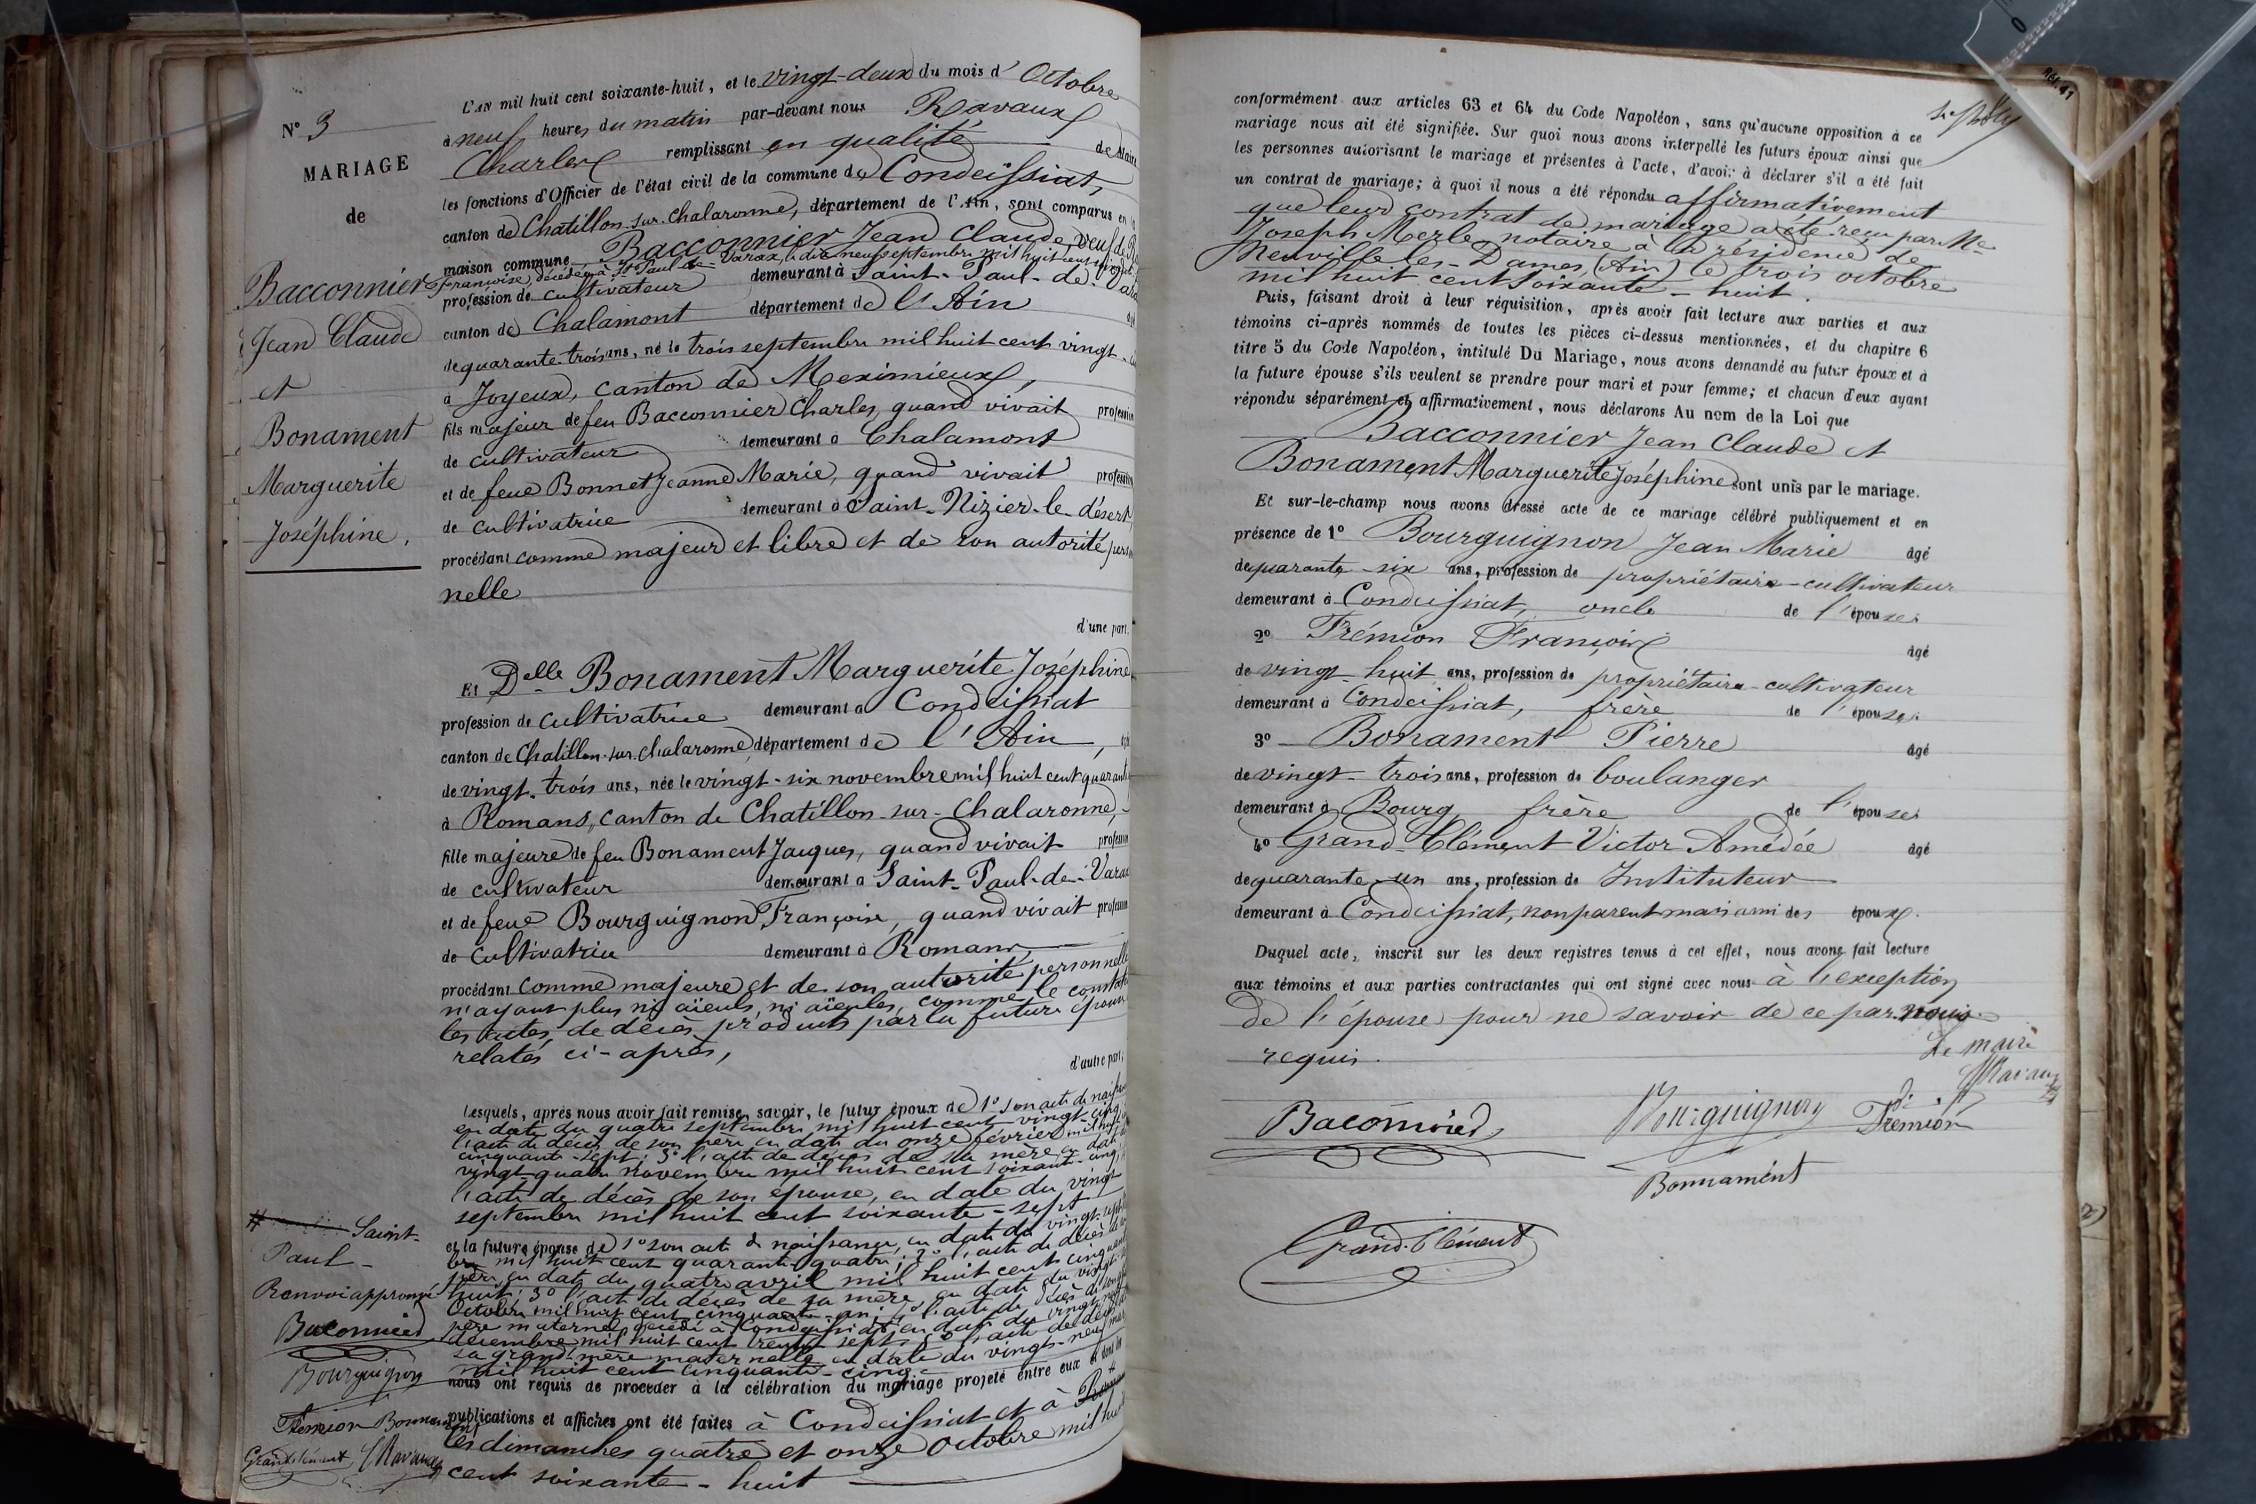 N° 3
MARIAGE
de
Bacconnier
Jean Claude
et
Bonament
Marguerite
Joséphine.
L'AN mil huit cent soixante-huit, et le vingt-deux du mois d'Octobre
à neuf heures du matin par-devant nous Ravaux
Charles remplissant en qualité de Maire
les fonctions d'Officier de l'état civil de la commune de Condeissiat,
canton de Chatillon-sur-Chalaronne, département de l'Ain, sont comparus en
maison commune Bacconnier Jean Claude, veuf de
Françoise, décédée à St Paul-de-Varax, le dix-neuf septembre mil huit cent
profession de cultivateur demeurant à Saint-Paul-de-Varax
canton de Chalamont département de l'Ain
de quarante-trois ans, né le trois septembre mil huit cent vingt-
à Joyeux, canton de Meximieux,
fils majeur de feu Bacconnier Charles, quand vivait profession
de cultivateur demeurant à Chalamont
et de feue Bonnet Jeanne Marie, quand vivait profession
de cultivatrice demeurant à Saint-Nizier-le-désert
procédant comme majeur et libre et de son autorité person
nelle
d'une part.
Et Delle Bonament Marguerite Joséphine
profession de cultivatrice demeurant à Condeissiat
canton de Chatillon-sur-Chalaronne, département de l'Ain,
de vingt-trois ans, née le vingt-six novembre mil huit cent quarante
à Romans, canton de Chatillon-sur-Chalaronne,
fille majeure de feu Bonament Jacques, quand vivait profession
de cultivateur demeurant à Saint-Paul-de-Varax
et de feue Bourguignon Françoise, quand vivait profession
de cultivatrice demeurant à Romans
procédant comme majeure et de son autorité personnelle
n'ayant plus ni aïeuls, ni aïeules, comme le constatent
les actes de décès produits par la future épouse
relatés ci-après,
d'autre part;
Lesquels, après nous avoir fait remise, savoir, le futur époux de 1° son acte de naissance
en date du quatre septembre mil huit cent vingt-cinq
l'acte de décès de son père en date du onze février mil huit
cinquante-sept; 3° l'acte de décès de sa mère en date
vingt-quatre novembre mil huit cent soixante-cinq,
l'acte de décès de son épouse, en date du vingt
septembre mil huit cent soixante-sept
et la future épouse de 1° son acte de naissance, en date du vingt-sept
bre mil huit cent quarante-quatre; 2° l'acte de décès de
père, en date du quatre avril mil huit cent cinquante
huit; 3° l'acte de décès de sa mère, en date du vingt-
Octobre mil huit cent cinquante-un; 4° l'acte de décès de
père maternel décédé à Condeissiat en date du vingt-
décembre mil huit cent trente-sept; 5° l'acte de décès de
sa grand'mère maternelle en date du vingt-neuf
mil huit cent cinquante-cinq
nous ont requis de procéder à la célébration du mariage projeté entre eux et dont les
publications et affiches ont été faites à Condeissiat et à
les dimanches quatre et onze octobre mil huit
cent soixante-huit
# Saint-
Paul-
Renvoi approuvé
Baconnied
Bourguignon
Fremion Bonnament
Grandclément Ravaux
conformément aux articles 63 et 64 du Code Napoléon, sans qu'aucune opposition à ce
mariage nous ait été signifiée. Sur quoi nous avons interpellé les futurs époux ainsi que
les personnes autorisant le mariage et présentes à l'acte, d'avoir à déclarer s'il a été fait
un contrat de mariage; à quoi il nous a été répondu affirmativement
que leur contrat de mariage a été reçu par Me
Joseph Merle notaire à la résidence de
Neuville-les-Dames (Ain) le trois octobre
mil huit cent soixante-huit.
Puis, faisant droit à leur réquisition, après avoir fait lecture aux parties et aux
témoins ci-après nommés de toutes les pièces ci-dessus mentionnées, et du chapitre 6
titre 5 du Code Napoléon, intitulé Du Mariage, nous avons demandé au futur époux et à
la future épouse s'ils veulent se prendre pour mari et pour femme; et chacun d'eux ayant
répondu séparément et affirmativement, nous déclarons Au nom de la Loi que
Bacconnier Jean Claude et
Bonament Marguerite Joséphine sont unis par le mariage.
Et sur-le-champ nous avons dressé acte de ce mariage célébré publiquement et en
présence de 1° Bourguignon Jean Marie âgé
de quarante-six ans, profession de propriétaire-cultivateur
demeurant à Condeissiat, oncle de l'épouse.
2° Frémion François âgé
de vingt-huit ans, profession de propriétaire-cultivateur
demeurant à Condeissiat, frère de l'épouse.
3° Bonament Pierre âgé
de vingt-trois ans, profession de boulanger
demeurant à Bourg frère de l'épouse.
4° Grand-Clément Victor Amédée âgé
de quarante-un ans, profession de Instituteur
demeurant à Condeissiat, non parent mais ami des époux.
Duquel acte, inscrit sur les deux registres tenus à cet effet, nous avons fait lecture
aux témoins et aux parties contractantes qui ont signé avec nous à l'exception
de l'épouse pour ne savoir de ce par nous
requis.
Le maire
Ravaux
Baconnied
Bourguignon
Fremion
Bonnament
Grand-Clément